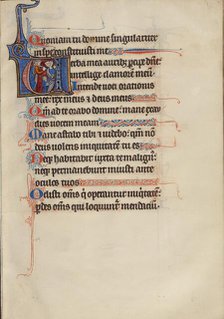 Quoniam tu domine singulariter
in spe constituisti me.
Verba mea auribz percipe dñe:
intellige clamorem meū.
Intende uoci orationis
mee: rex meus ⁊ deus meus.
Quō ad te orabo domine: mane exau
dies uocem meam.
Mane astabo tibi ⁊ uidebo: qm̄ nō
deus uolens iniquitatem tu es.
Neqz habitabit iuxta te malign⁹:
neqz permanebunt iniusti ante
oculos tuos
Odisti om̄s qi operantur iniqitatē:
perdes om̄s qui loquunt᷑ mendaciū.